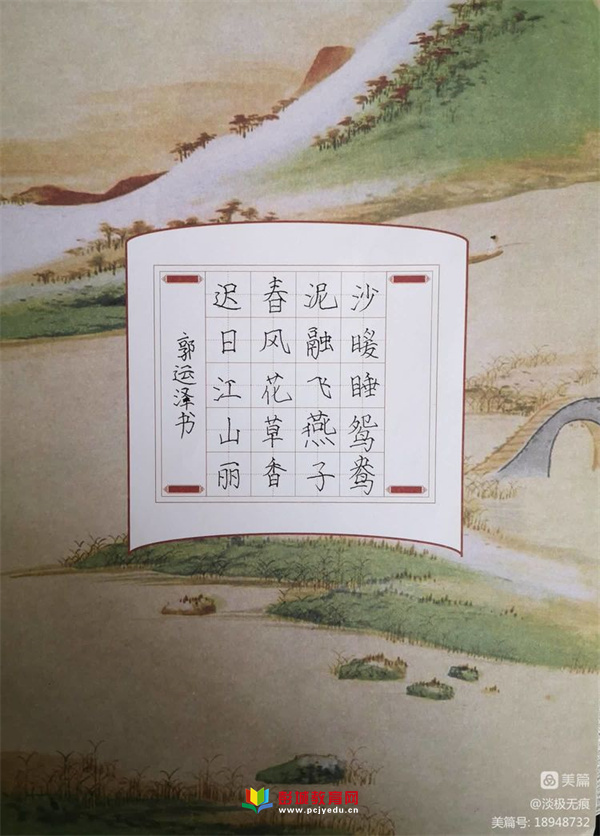 迟日江山丽
春风花草香
泥融飞燕子
沙暖睡鸳鸯
郭运泽书
教育网
www.pcjyedu.cn
美篇
@淡极无痕
美篇号: 18948732